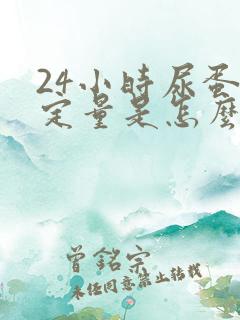 24小時尿蛋
定量是怎麼
曾銘宗
未经同意禁止转载